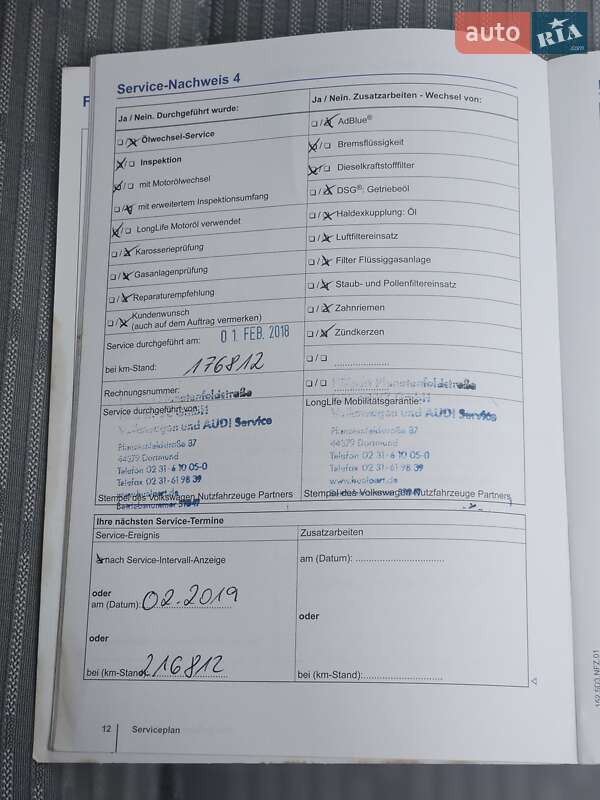 auto RIA .com
Service-Nachweis 4
Ja / Nein. Durchgeführt wurde:
☐/☒ Ölwechsel-Service
☒/☐ Inspektion
☒/☐ mit Motorölwechsel
☐/☒ mit erweitertem Inspektionsumfang
☒/☐ LongLife Motoröl verwendet
☐/☒ Karosserieprüfung
☐/☒ Gasanlagenprüfung
☐/☒ Reparaturempfehlung
☐/☒ Kundenwunsch
(auch auf dem Auftrag vermerken)
Service durchgeführt am: 01 FEB. 2018
bei km-Stand: 176812
Rechnungsnummer:
Service durchgeführt von:
Volkswagen und AUDI Service
Planetenfeldstraße 87
44379 Dortmund
Telefon 02 31-6 10 05-0
Telefax 02 31-61 98 39
Stempel des Volkswagen Nutzfahrzeuge Partners
Betriebsnummer
Ja / Nein. Zusatzarbeiten - Wechsel von:
☐/☒ AdBlue®
☒/☐ Bremsflüssigkeit
☒/☐ Dieselkraftstofffilter
☐/☒ DSG®: Getriebeöl
☐/☒ Haldexkupplung: Öl
☐/☒ Luftfiltereinsatz
☐/☒ Filter Flüssiggasanlage
☐/☒ Staub- und Pollenfiltereinsatz
☐/☒ Zahnriemen
☐/☒ Zündkerzen
☐/☐
☐/☐ Planetenfeldstraße
LongLife Mobilitätsgarantie:
Volkswagen und AUDI Service
Planetenfeldstraße 87
44379 Dortmund
Telefon 02 31-6 10 05-0
Telefax 02 31-61 98 39
Stempel des Volkswagen Nutzfahrzeuge Partners
Ihre nächsten Service-Termine
Service-Ereignis
☒ nach Service-Intervall-Anzeige
oder
am (Datum): 02.2019
oder
bei (km-Stand): 216812
Zusatzarbeiten
am (Datum):
oder
bei (km-Stand):
12 Serviceplan